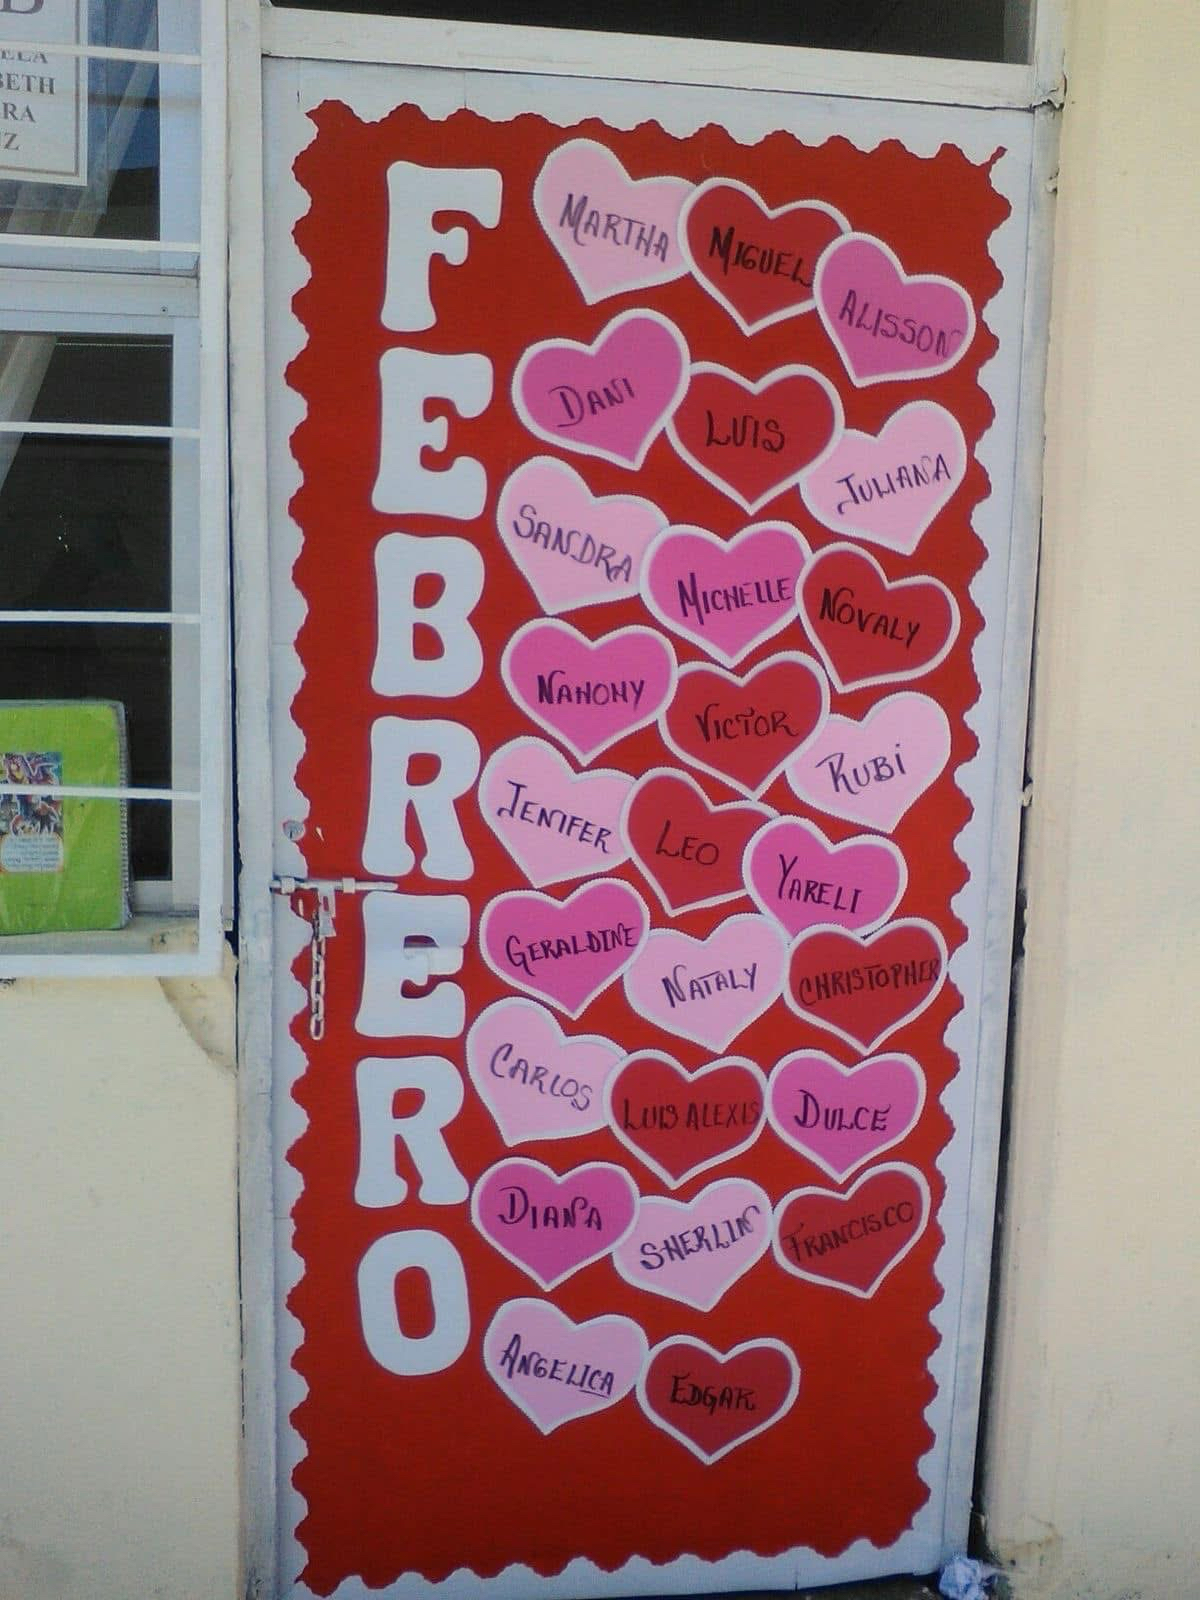 FEBRERO
MARTHA
MIGUEL
ALISSON
DANI
LUIS
JULIANA
SANDRA
MICHELLE
NOVALY
NAHOMY
VICTOR
RUBi
JENIFER
LEO
YARELI
GERALDINE
NATALY
CHRISTOPHER
CARLOS
LUIS ALEXIS
DULCE
DIANA
SHERLIN
FRANCISCO
ANGELICA
EDGAR